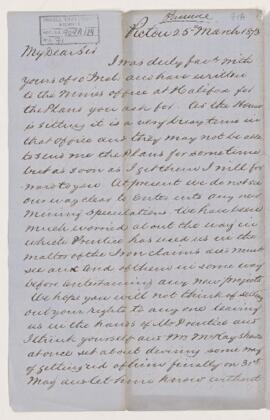 Pictou 25th March 1873
My Dear Sir
I was duly favd with
yours of 10 Inst and have written
to the Mines office at Halifax for
the Plans you ask for. As the House
is sitting it is a very busy time in
that office and they may not be able
to send me the Plans for some time
but as soon as I get them I will for
ward to you. At present we do not see
our way clear to enter into any new
Mining Speculations. We have been
much worried about the way in
which Prentice has used us in the
matter of the Iron claims and must
see an End of them in some way
before entertaining any new projects
We hope you will not think of selling
out your rights to any one leaving
us in the hands of Mr Prentice and
I think yourself and Mr McKay should
at once set about devising some way
of getting rid of him finally on 31st
May and let him know without